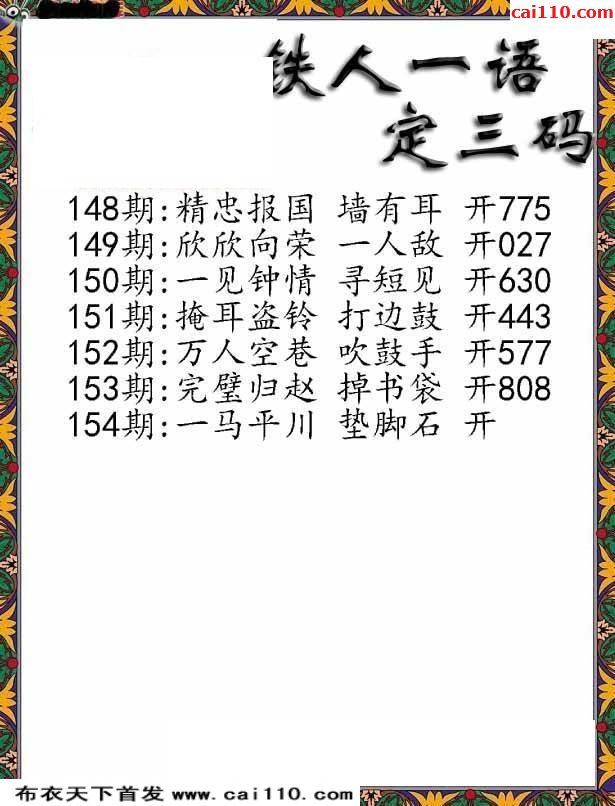 cai110.com
铁人一语
定三码
148期:精忠报国 墙有耳 开775
149期:欣欣向荣 一人敌 开027
150期:一见钟情 寻短见 开630
151期:掩耳盗铃 打边鼓 开443
152期:万人空巷 吹鼓手 开577
153期:完璧归赵 掉书袋 开808
154期:一马平川 垫脚石 开
布衣天下首发 www.cai110.com